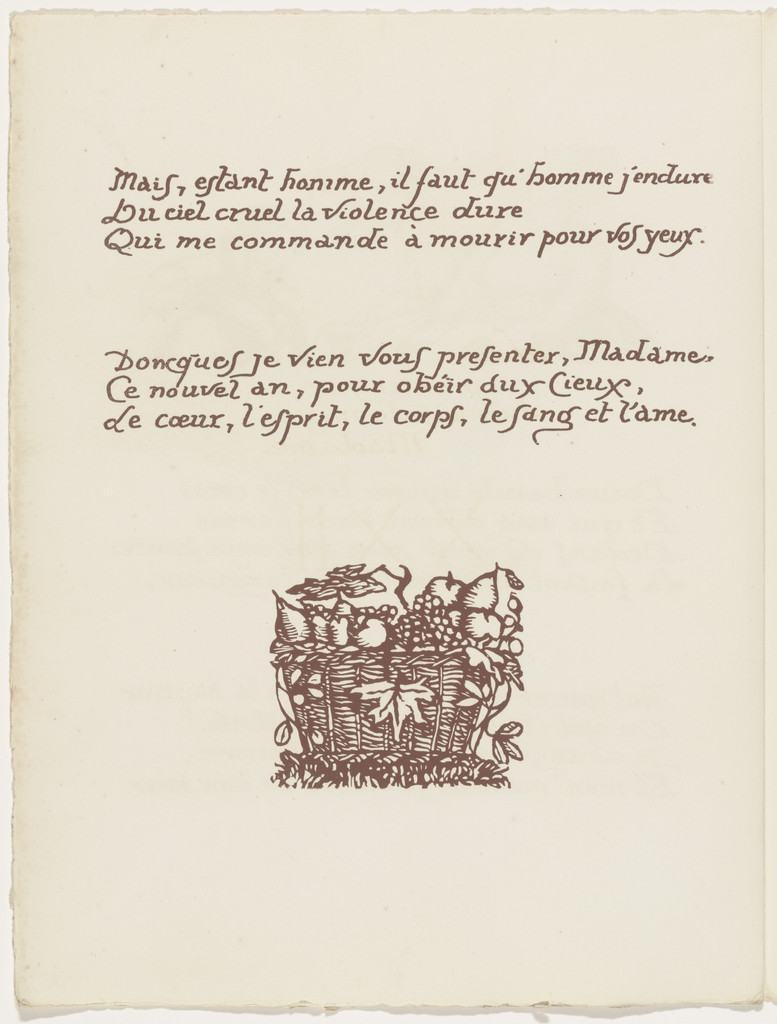 Mais, estant homme, il faut qu'homme j'endure
Du ciel cruel la violence dure
Qui me commande à mourir pour vos yeux.
Doncques je vien vous presenter, Madame,
Ce nouvel an, pour obéir aux Cieux,
Le cœur, l'esprit, le corps, le sang et l'âme.